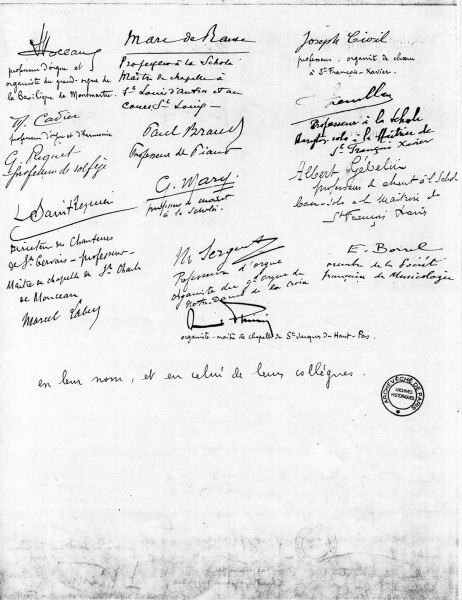 professeur d'orgue et
organiste du grand-orgue de
la Basilique de Montmartre.
professeur d'orgue et d'harmonie
G. Piquet
professeur de solfège
Saint Requier
Directeur des Chanteurs
de St Gervais - professeur -
Maître de chapelle de St Charles
de Monceau
Marcel Labey
Marc de Ranse
Professeur à la Schola
Maître de chapelle à
St Louis d'Antin et au
cours St Louis
Paul Braud
Professeur de Piano
G. Mary
professeur de
à la Schola.
M. Sergent
Professeur d'orgue
organiste du gd orgue de
Notre-Dame de la Croix
organiste - maître de chapelle de St Jacques du Haut-Pas.
Joseph Civil
professeur, organiste de chœur
à St François-Xavier.
Professeur à la Schola
à la Maîtrise de
St François Xavier
Albert Gébelin
professeur de chant à la Schola
à la Maîtrise de
St François Xavier
E. Borrel
membre de la Société
française de Musicologie
en leur nom, et en celui de leurs collègues.
ARCHEVÊCHÉ DE PARIS
ARCHIVES
HISTORIQUES